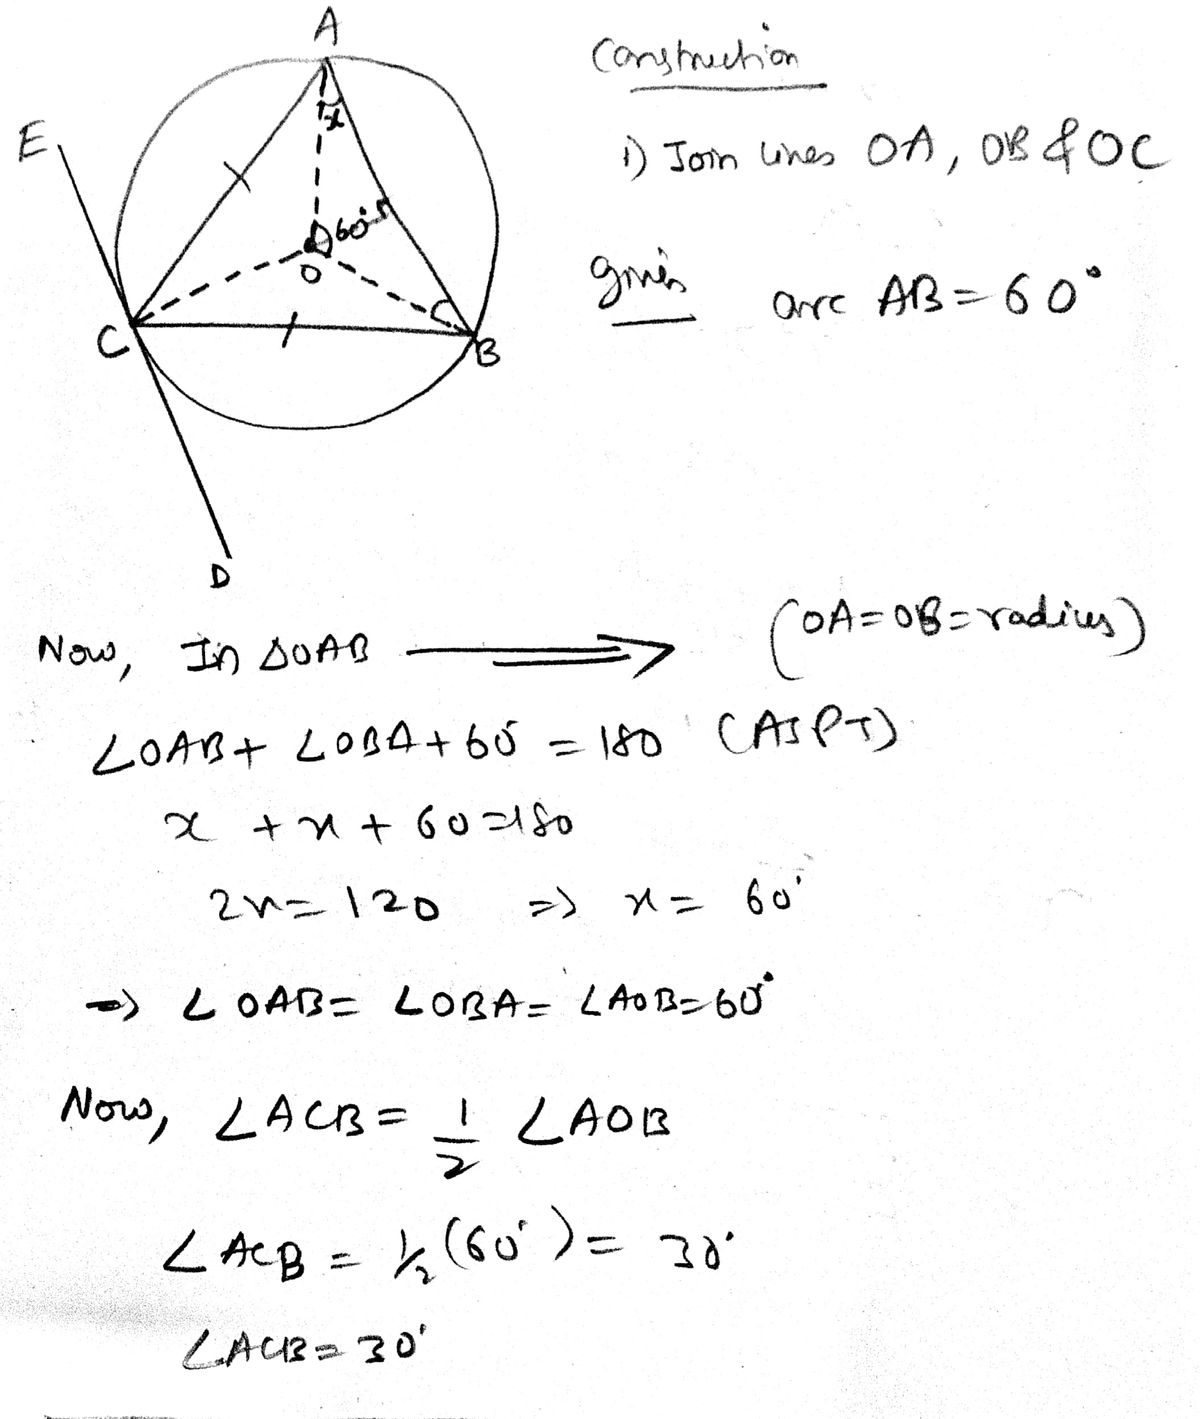 A
Construction
E
1) Join lines OA, OB & OC
x
60°
O
given arc AB = 60°
C
B
D
Now, In ΔOAB ⟹ (OA = OB = radius)
∠OAB + ∠OBA + 60° = 180° (ASPT)
x + x + 60 = 180
2x = 120 => x = 60°
=> ∠OAB = ∠OBA = ∠AOB = 60°
Now, ∠ACB = 1/2 ∠AOB
∠ACB = 1/2 (60°) = 30°
∠ACB = 30°